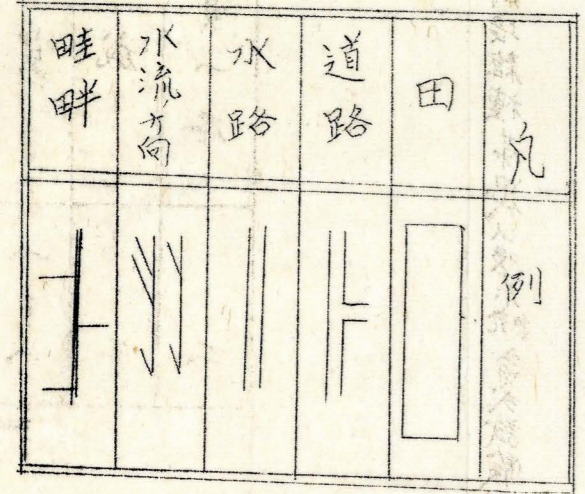 凡例
田
道路
水路
水流方向
畦畔